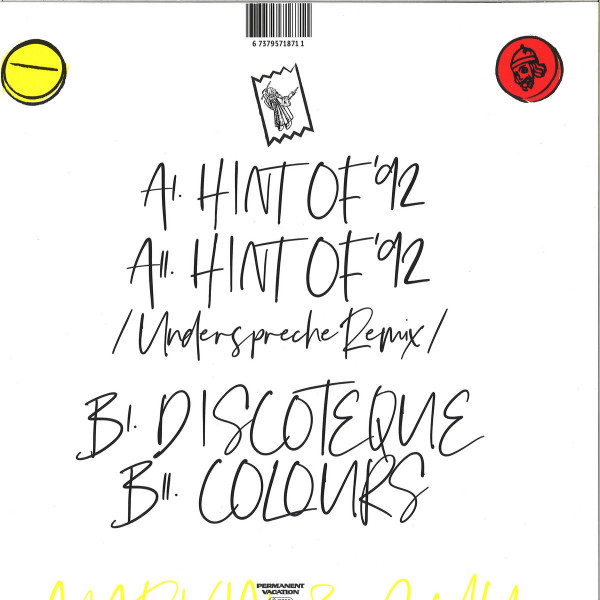 6 73795 71871 1
AI. HINT OF '92
AII. HINT OF '92
/Underspreche Remix/
BI. DISCOTEQUE
BII. COLOURS
PERMANENT
VACATION